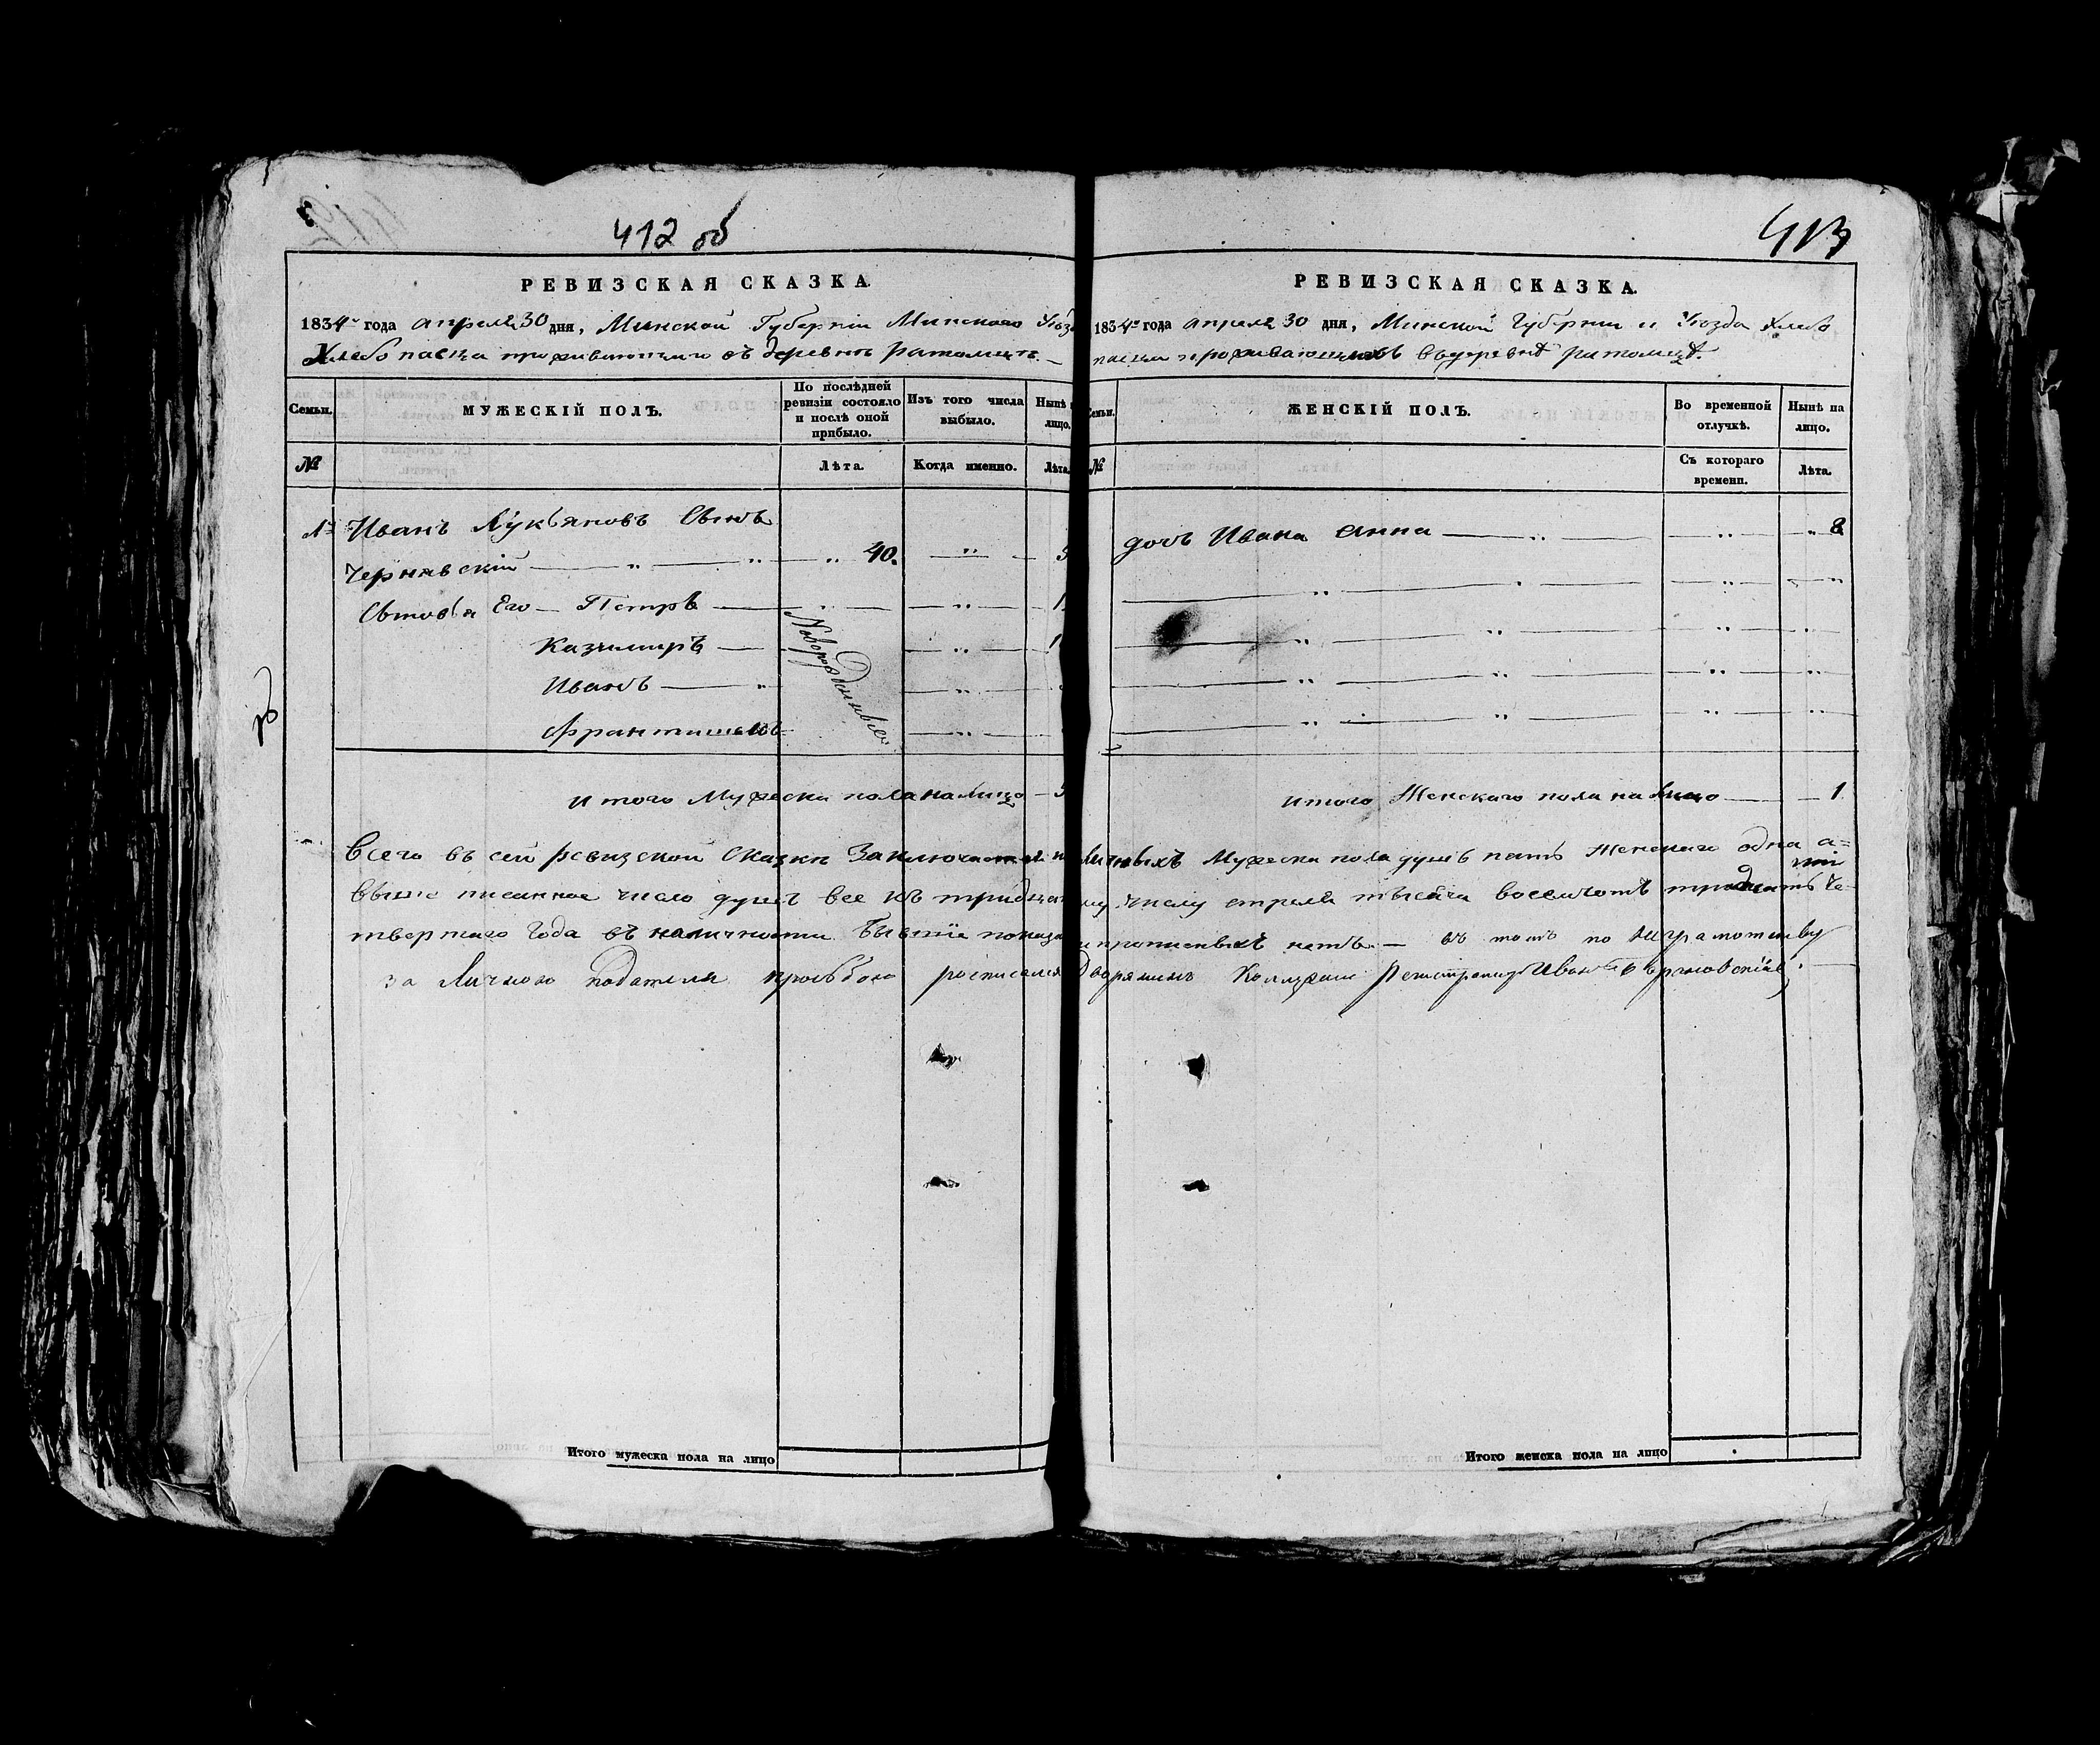 412 об
РЕВИЗСКАЯ СКАЗКА.
1834го года апреля 30 дня, Минской Губернiи Минского Уѣз
Хлебо пасца проживающаго въ деревнѣ ратомцѣ. —
Семьи.
МУЖЕСКІЙ ПОЛЪ.
По послѣдней ревизіи состояло и послѣ оной прибыло.
Изъ того числа выбыло.
Нынѣ
лицо.
№
Лѣта.
Когда именно.
Лѣта.
№ Иванъ Лукьяновъ Сынъ
Чернявскій — „ — „ — „ 40. — „ —
Сыновья Его — Петръ — „ — „ — 1
Казимиръ — — „ — 1
Иванъ — „ — „ —
Францишекъ — „ —
Новорожденные
итого Мужеска пола на лицо — 5
413
РЕВИЗСКАЯ СКАЗКА.
1834го года апреля 30 дня, Минской Губернiи и Уѣзда Хлебо
пасца проживающихъ въ деревнѣ ратомцѣ.
Семьи.
ЖЕНСКІЙ ПОЛЪ.
Во временной отлучкѣ.
Нынѣ на лицо.
№
Съ котораго времени.
Лѣта.
дочь Ивана Анна — „ — „ — „ 8
итого Женскаго пола на лицо — 1
Всего въ сей ревизской сказки Заключается наличныхъ Мужеска пола душъ пять Женскаго одна а=
выше писанное число душъ все къ тридцатому числу апреля тысяча восемьсотъ тридцать че-
твертаго Года въ наличности Бывшiе прописныхъ нетъ. — въ томъ по Неграмотству
за Личною подателя прозбою росписался Дворянинъ Колежски Регистраторъ Иванъ
Итого мужеска пола на лицо
Итого женска пола на лицо